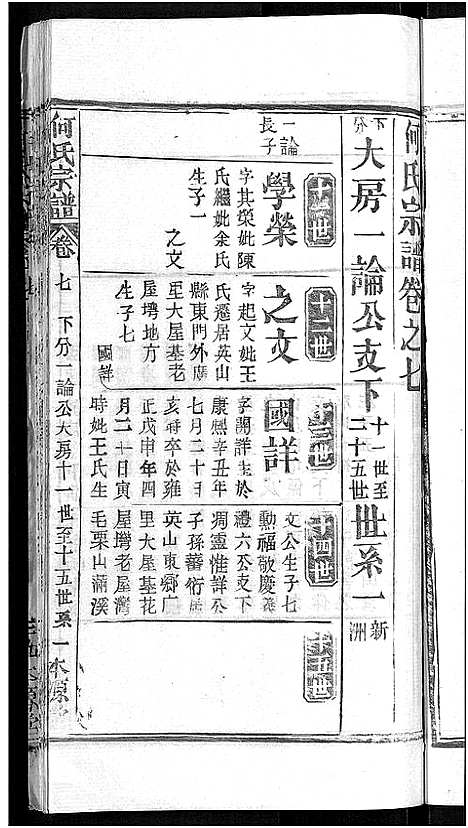 何氏宗譜卷之七
下分大房一論公支下十一世至二十五世世系一新洲
十一世
一論長子
學榮
字其榮妣陳
氏繼妣余氏
生子一
之文
十二世
之文
字起文妣王
氏遷居英山
縣東門外廣
至大屋基老
屋塆地方
生子七
國詳
十三世
國詳
字開詳生於
康熙辛丑年
七月二十日
亥時卒於雍
正戊申年四
月二十日寅
時妣王氏生
十四世
文公生子七
勲福敬慶義
禮六公支下
凋靈惟詳公
子孫蕃衍
英山東鄉廣
里大屋基花
屋塆老屋灣
毛栗山滿溪
十五世
何氏宗譜
卷七
下分一論公大房十一世至十五世世系一